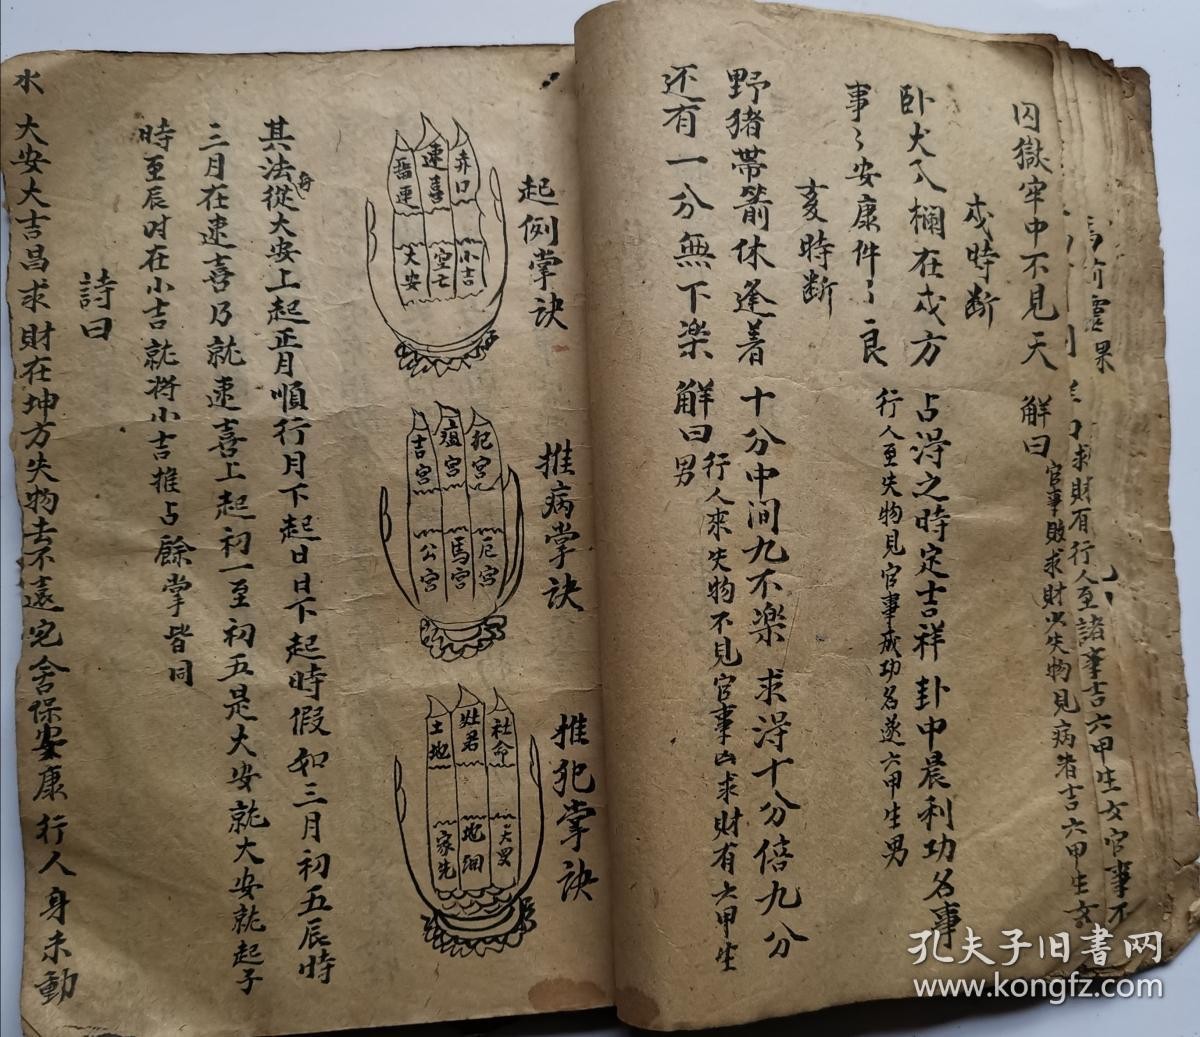 囚獄牢中不見天
解曰
官事敗求財少失物見病者吉六甲生女
戌時断
卧犬入欄在戌方
占淂之時定吉祥
卦中晨利功名事
事〻安康件〻良
行人至失物見官事成功名遂六甲生男
亥時断
野猪帶箭休逢着
十分中间九不楽
求淂十分倍九分
还有一分無下楽
解曰
行人來失物不見官事凶求財有六甲生
男
起例掌訣
弃口
速喜
畱連
小吉
空亡
大安
推病掌訣
犯宮
瘟宮
吉宮
厄宮
馬宮
公宮
推犯掌訣
社命
灶君
土地
家先
其法從大安上起正月順行月下起日日下起時假如三月初五辰時
三月在速喜乃就速喜上起初一至初五是大安就大安就起子
時至辰时在小吉就将小吉推占餘掌皆同
詩曰
水
大安大吉昌求財在坤方失物去不遠宅舍保安康行人身未動
孔夫子旧書网
www.kongfz.com